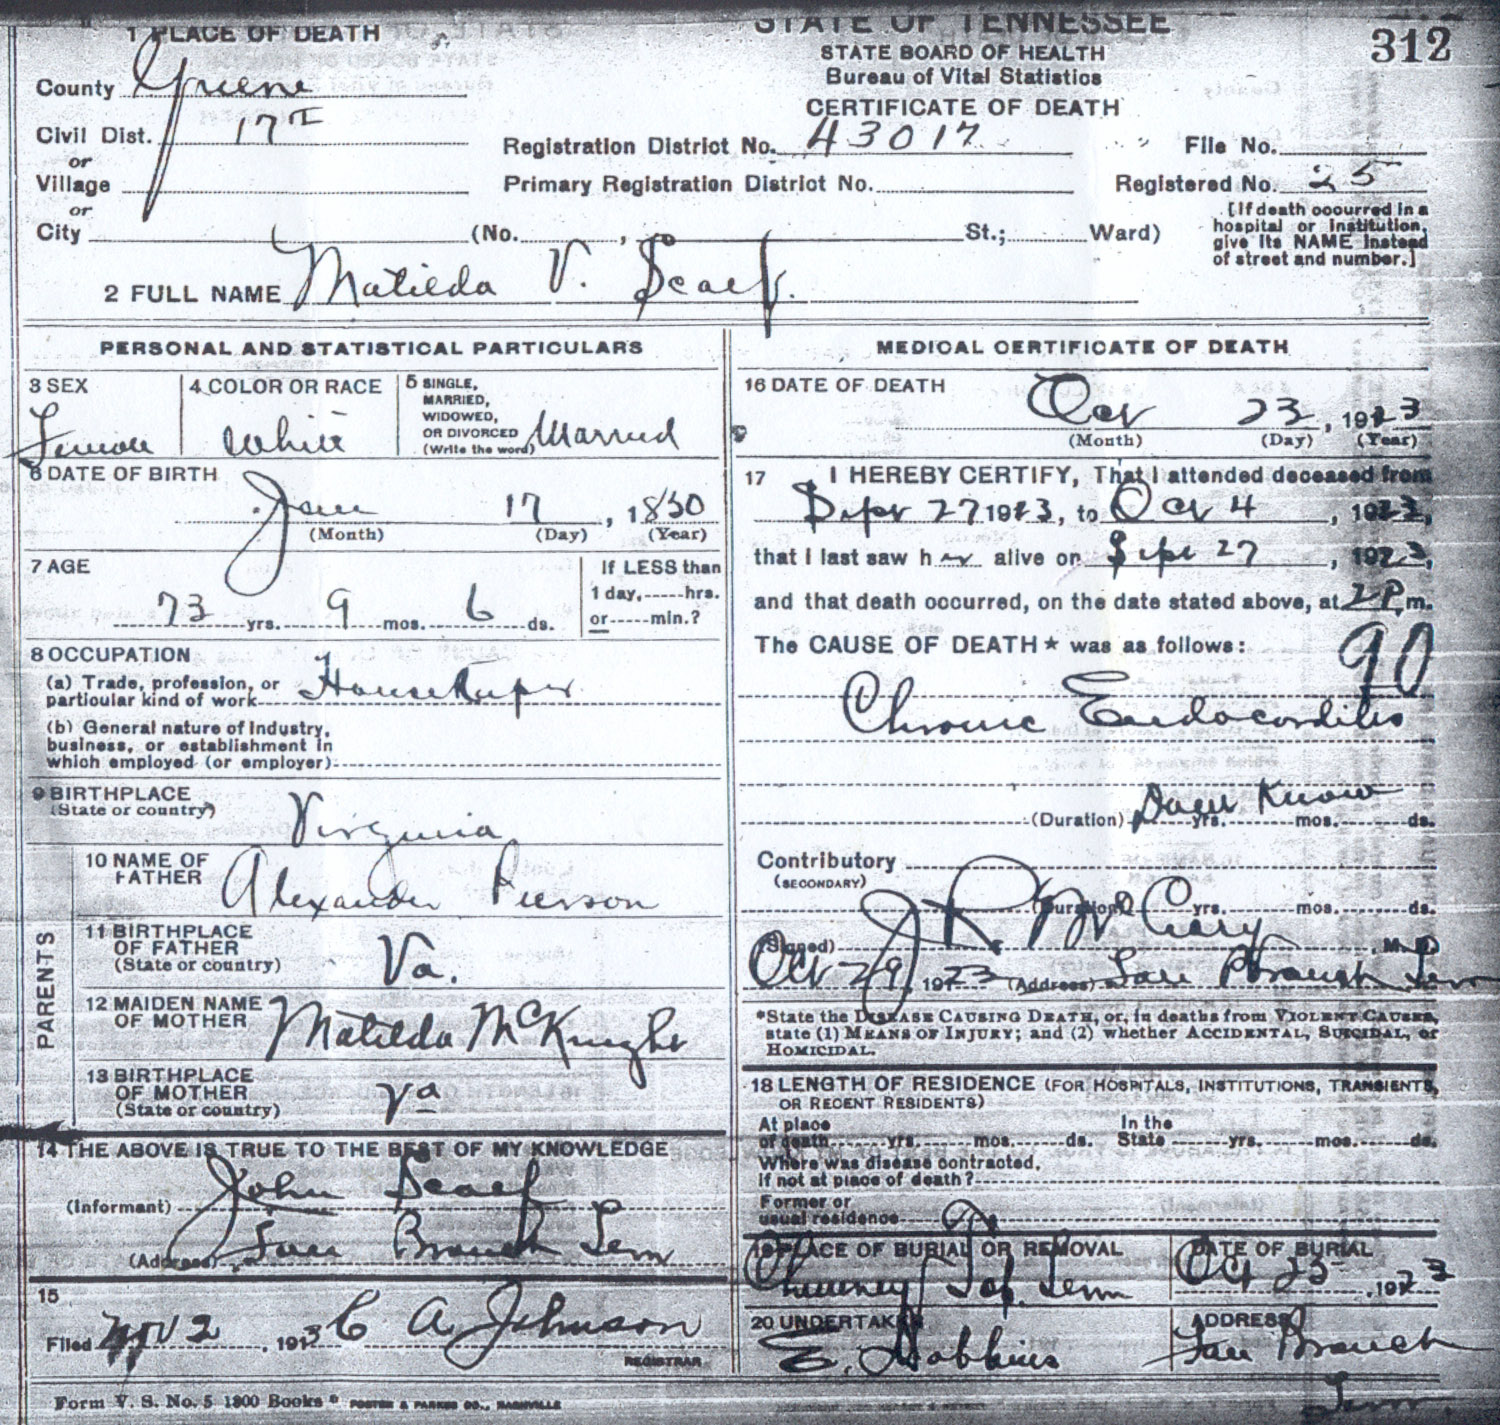 STATE OF TENNESSEE
STATE BOARD OF HEALTH
Bureau of Vital Statistics
CERTIFICATE OF DEATH
312
1 PLACE OF DEATH
County Greene
Civil Dist. 17
or
Village
or
City (No. , St.; Ward)
Registration District No. 43017
File No.
Primary Registration District No.
Registered No. 25
[If death occurred in a
hospital or institution,
give its NAME instead
of street and number.]
2 FULL NAME Matilda V. Scaef.
PERSONAL AND STATISTICAL PARTICULARS
3 SEX
Female
4 COLOR OR RACE
White
5 SINGLE,
MARRIED,
WIDOWED,
OR DIVORCED
(Write the word) Married
6 DATE OF BIRTH
Jan 17, 1850
(Month) (Day) (Year)
7 AGE
73 yrs. 9 mos. 6 ds.
If LESS than
1 day, hrs.
or min.?
8 OCCUPATION
(a) Trade, profession, or
particular kind of work Housekeeper
(b) General nature of industry,
business, or establishment in
which employed (or employer)
9 BIRTHPLACE
(State or country) Virginia
PARENTS
10 NAME OF
FATHER Alexander Pierson
11 BIRTHPLACE
OF FATHER
(State or country) Va.
12 MAIDEN NAME
OF MOTHER Matilda McKnight
13 BIRTHPLACE
OF MOTHER
(State or country) Va
14 THE ABOVE IS TRUE TO THE BEST OF MY KNOWLEDGE
(Informant) John Scaef
(Address) Branch Tenn
15
Filed Nov 2, 1923 C A Johnson
REGISTRAR
Form V. S. No. 5 1300 Books FOSTER & PARKES CO., NASHVILLE
MEDICAL CERTIFICATE OF DEATH
16 DATE OF DEATH
Oct 23, 1923
(Month) (Day) (Year)
17 I HEREBY CERTIFY, That I attended deceased from
Sept 27 1923, to Oct 4, 1923,
that I last saw her alive on Sept 27, 1923,
and that death occurred, on the date stated above, at 2 P.m.
The CAUSE OF DEATH* was as follows:
90
Chronic Endocarditis
(Duration) Dont Know yrs. mos. ds.
Contributory
(SECONDARY)
(Duration) yrs. mos. ds.
(Signed) J R , M. D.
Oct 29, 1923 (Address) Branch Tenn
*State the DISEASE CAUSING DEATH, or, in deaths from VIOLENT CAUSES,
state (1) MEANS OF INJURY; and (2) whether ACCIDENTAL, SUICIDAL, or
HOMICIDAL.
18 LENGTH OF RESIDENCE (FOR HOSPITALS, INSTITUTIONS, TRANSIENTS,
OR RECENT RESIDENTS)
At place
of death yrs. mos. ds.
In the
State yrs. mos. ds.
Where was disease contracted,
if not at place of death?
Former or
usual residence
19 PLACE OF BURIAL OR REMOVAL
Tenn
DATE OF BURIAL
Oct 25, 1923
20 UNDERTAKER
E. Dobbins
ADDRESS
Branch
Tenn.